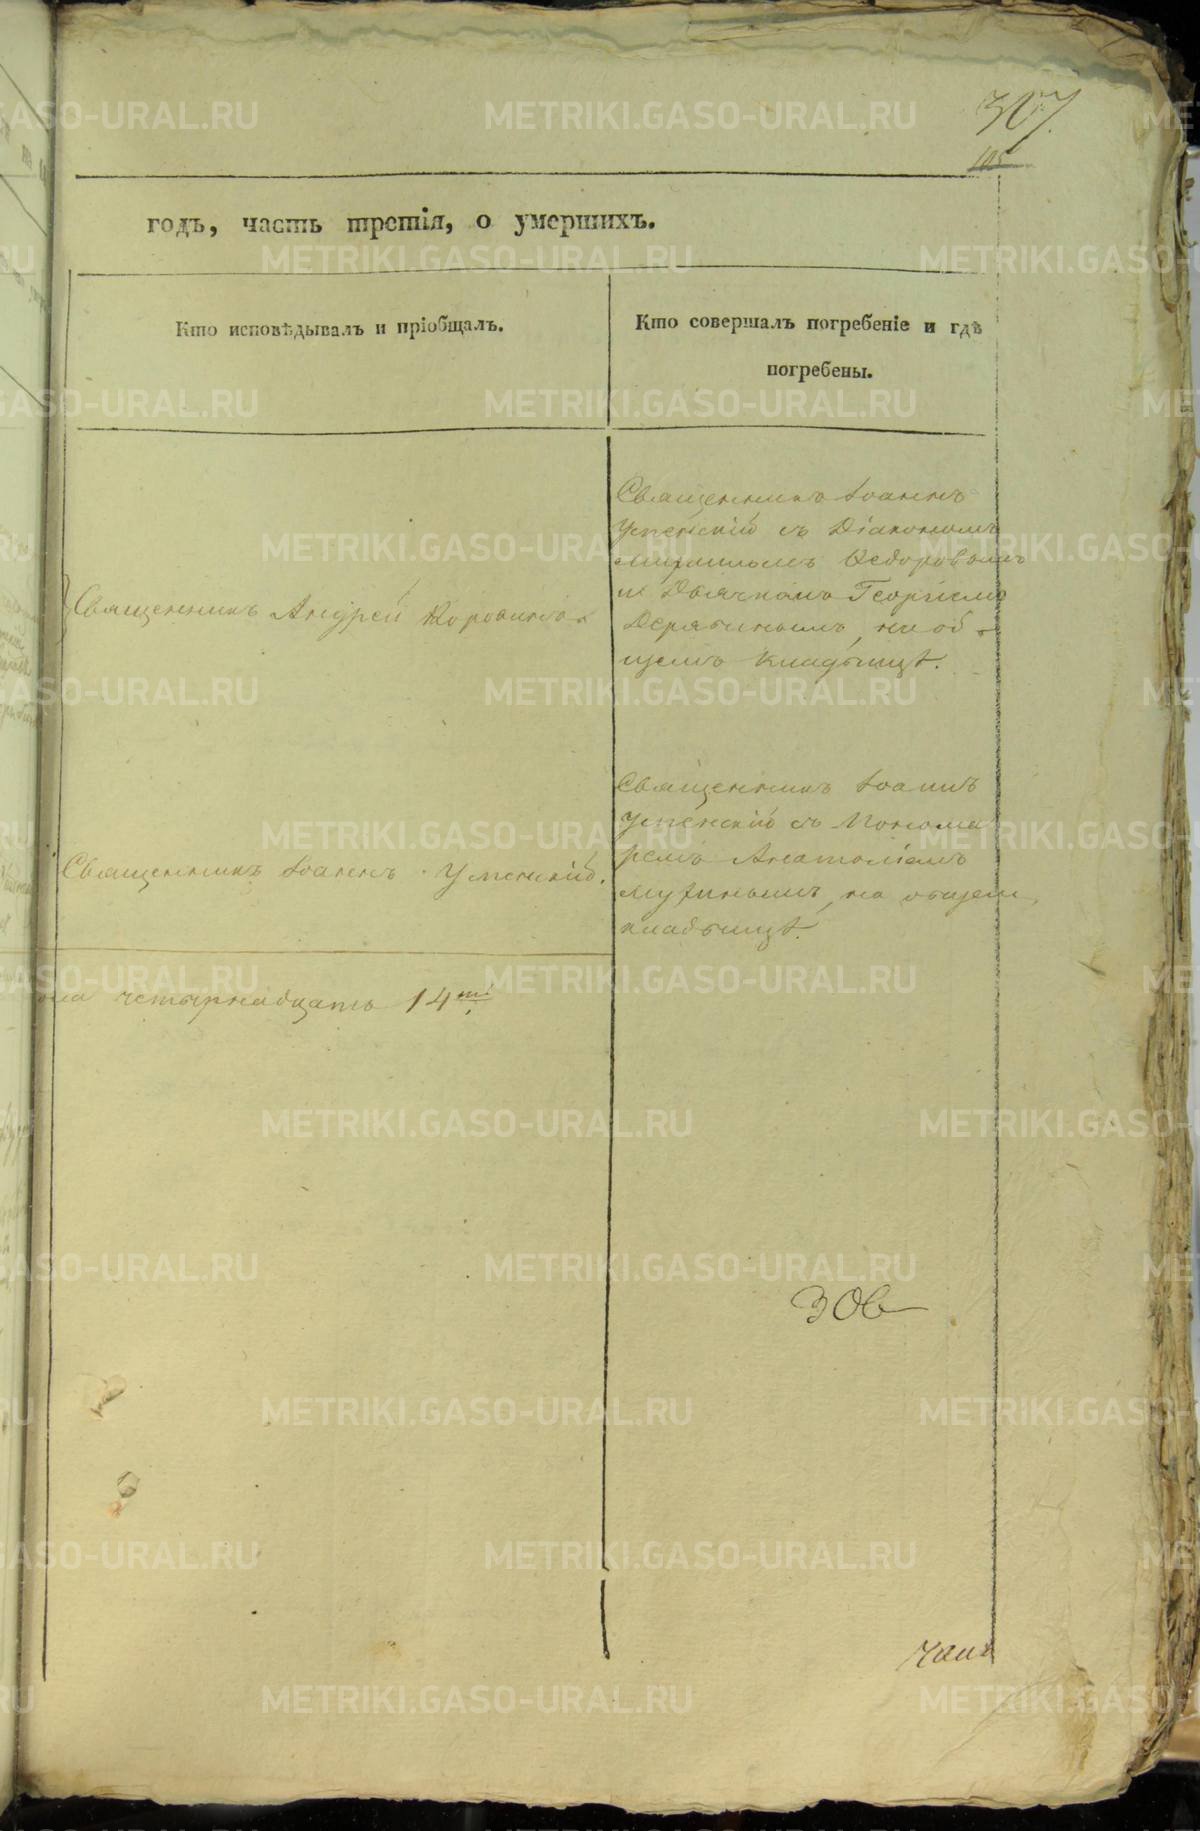 307.
105
годъ, часть третія, о умершихъ.
Кто исповѣдывалъ и пріобщалъ.
Кто совершалъ погребеніе и гдѣ
погребены.
Священникъ Андрей
Священникъ Іоаннъ
Успенскій съ Діакономъ
Ѳедоровымъ
и Дьячкомъ Георгіемъ
на об-
щемъ кладбищѣ.
Священникъ Іоаннъ Успенскій.
Священникъ Іоаннъ
Успенскій съ Понома
ремъ Анатоліемъ
на общем
кладбищѣ.
четырнадцать 14
METRIKI.GASO-URAL.RU